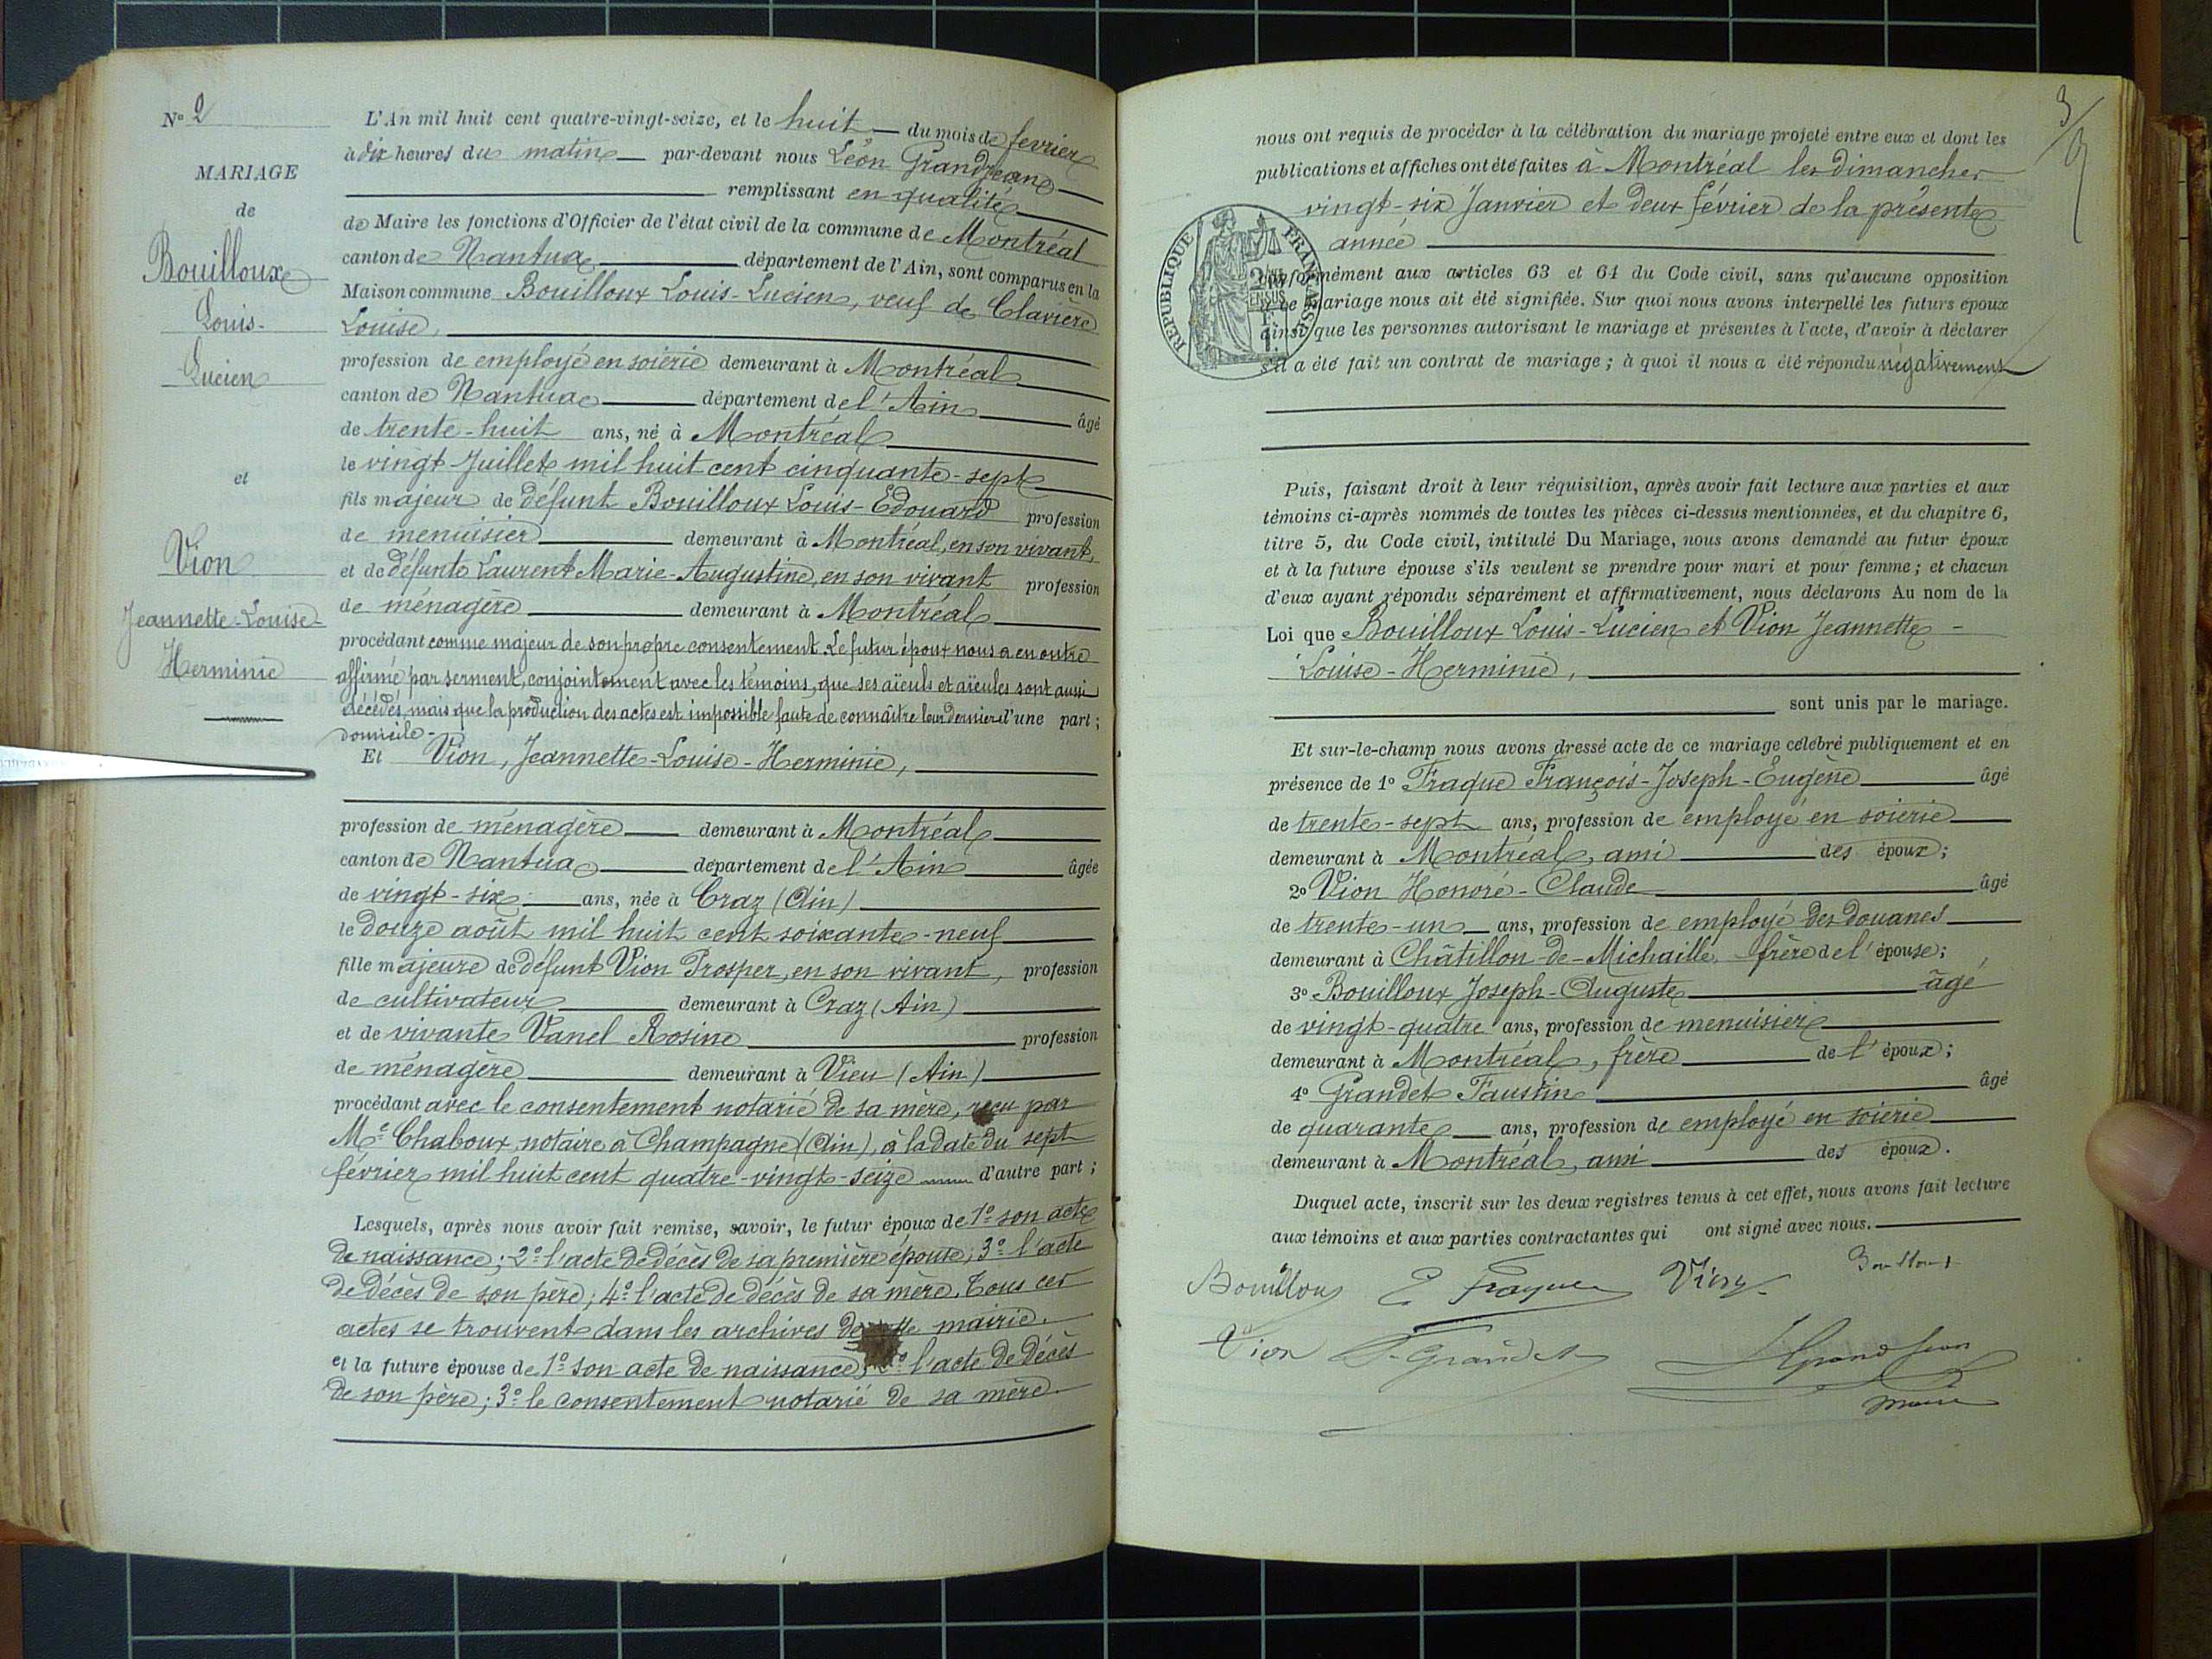 N° 2
MARIAGE
de
Bouilloux
Louis-
Lucien
et
Vion
Jeannette-Louise-
Herminie
L'An mil huit cent quatre-vingt-seize, et le huit du mois de fevrier
à dix heures du matin par-devant nous Léon Grandjean
remplissant en qualité
de Maire les fonctions d'Officier de l'état civil de la commune de Montréal
canton de Nantua département de l'Ain, sont comparus en la
Maison commune Bouilloux Louis-Lucien, veuf de Clavière
Louise,
profession de employé en soierie demeurant à Montréal
canton de Nantua département de l'Ain âgé
de trente-huit ans, né à Montréal
le vingt Juillet mil huit cent cinquante-sept
fils majeur de défunt Bouilloux Louis-Edouard profession
de menuisier demeurant à Montréal, en son vivant,
et de défunte Laurent Marie-Augustine, en son vivant profession
de ménagère demeurant à Montréal
procédant comme majeur de son propre consentement. Le futur époux nous a en outre
affirmé par serment, conjointement avec les témoins, que ses aïeuls et aïeules sont aussi
décédés, mais que la production des actes est impossible faute de connaître leur dernier d'une part;
domicile-
Et Vion, Jeannette-Louise-Herminie,
profession de ménagère demeurant à Montréal
canton de Nantua département de l'Ain âgée
de vingt-six ans, née à Craz (Ain)
le douze août mil huit cent soixante-neuf
fille majeure de défunt Vion Prosper, en son vivant, profession
de cultivateur demeurant à Craz (Ain)
et de vivante Vanel Rosine profession
de ménagère demeurant à Vieu (Ain)
procédant avec le consentement notarié de sa mère, reçu par
Me Chaboux, notaire à Champagne (Ain), à la date du sept
février mil huit cent quatre-vingt-seize d'autre part;
Lesquels, après nous avoir fait remise, savoir, le futur époux de 1° son acte
de naissance; 2° l'acte de décès de sa première épouse; 3° l'acte
de décès de son père; 4° l'acte de décès de sa mère. Tous ces
actes se trouvent dans les archives de mairie.
et la future épouse de 1° son acte de naissance; l'acte de décès
de son père; 3° le consentement notarié de sa mère.
3
nous ont requis de procéder à la célébration du mariage projeté entre eux et dont les
publications et affiches ont été faites à Montréal les dimanches
vingt-six Janvier et deux février de la présente
année
RÉPUBLIQUE FRANÇAISE
conformément aux articles 63 et 64 du Code civil, sans qu'aucune opposition
à ce mariage nous ait été signifiée. Sur quoi nous avons interpellé les futurs époux
ainsi que les personnes autorisant le mariage et présentes à l'acte, d'avoir à déclarer
s'il a été fait un contrat de mariage; à quoi il nous a été répondu négativement
Puis, faisant droit à leur réquisition, après avoir fait lecture aux parties et aux
témoins ci-après nommés de toutes les pièces ci-dessus mentionnées, et du chapitre 6,
titre 5, du Code civil, intitulé Du Mariage, nous avons demandé au futur époux
et à la future épouse s'ils veulent se prendre pour mari et pour femme; et chacun
d'eux ayant répondu séparément et affirmativement, nous déclarons Au nom de la
Loi que Bouilloux Louis-Lucien et Vion Jeannette-
Louise-Herminie,
sont unis par le mariage.
Et sur-le-champ nous avons dressé acte de ce mariage célébré publiquement et en
présence de 1° Fraque François-Joseph-Eugène âgé
de trente-sept ans, profession de employé en soierie
demeurant à Montréal, ami des époux;
2° Vion Honoré-Claude âgé
de trente-un ans, profession de employé des douanes
demeurant à Châtillon-de-Michaille, frère de l'épouse;
3° Bouilloux Joseph-Auguste âgé
de vingt-quatre ans, profession de menuisier
demeurant à Montréal, frère de l'époux;
4° Grandet Faustin âgé
de quarante ans, profession de employé en soierie
demeurant à Montréal, ami des époux.
Duquel acte, inscrit sur les deux registres tenus à cet effet, nous avons fait lecture
aux témoins et aux parties contractantes qui ont signé avec nous.
Bouilloux E Fraque Vion Bouilloux
Vion F. Grandet L Grandjean
maire